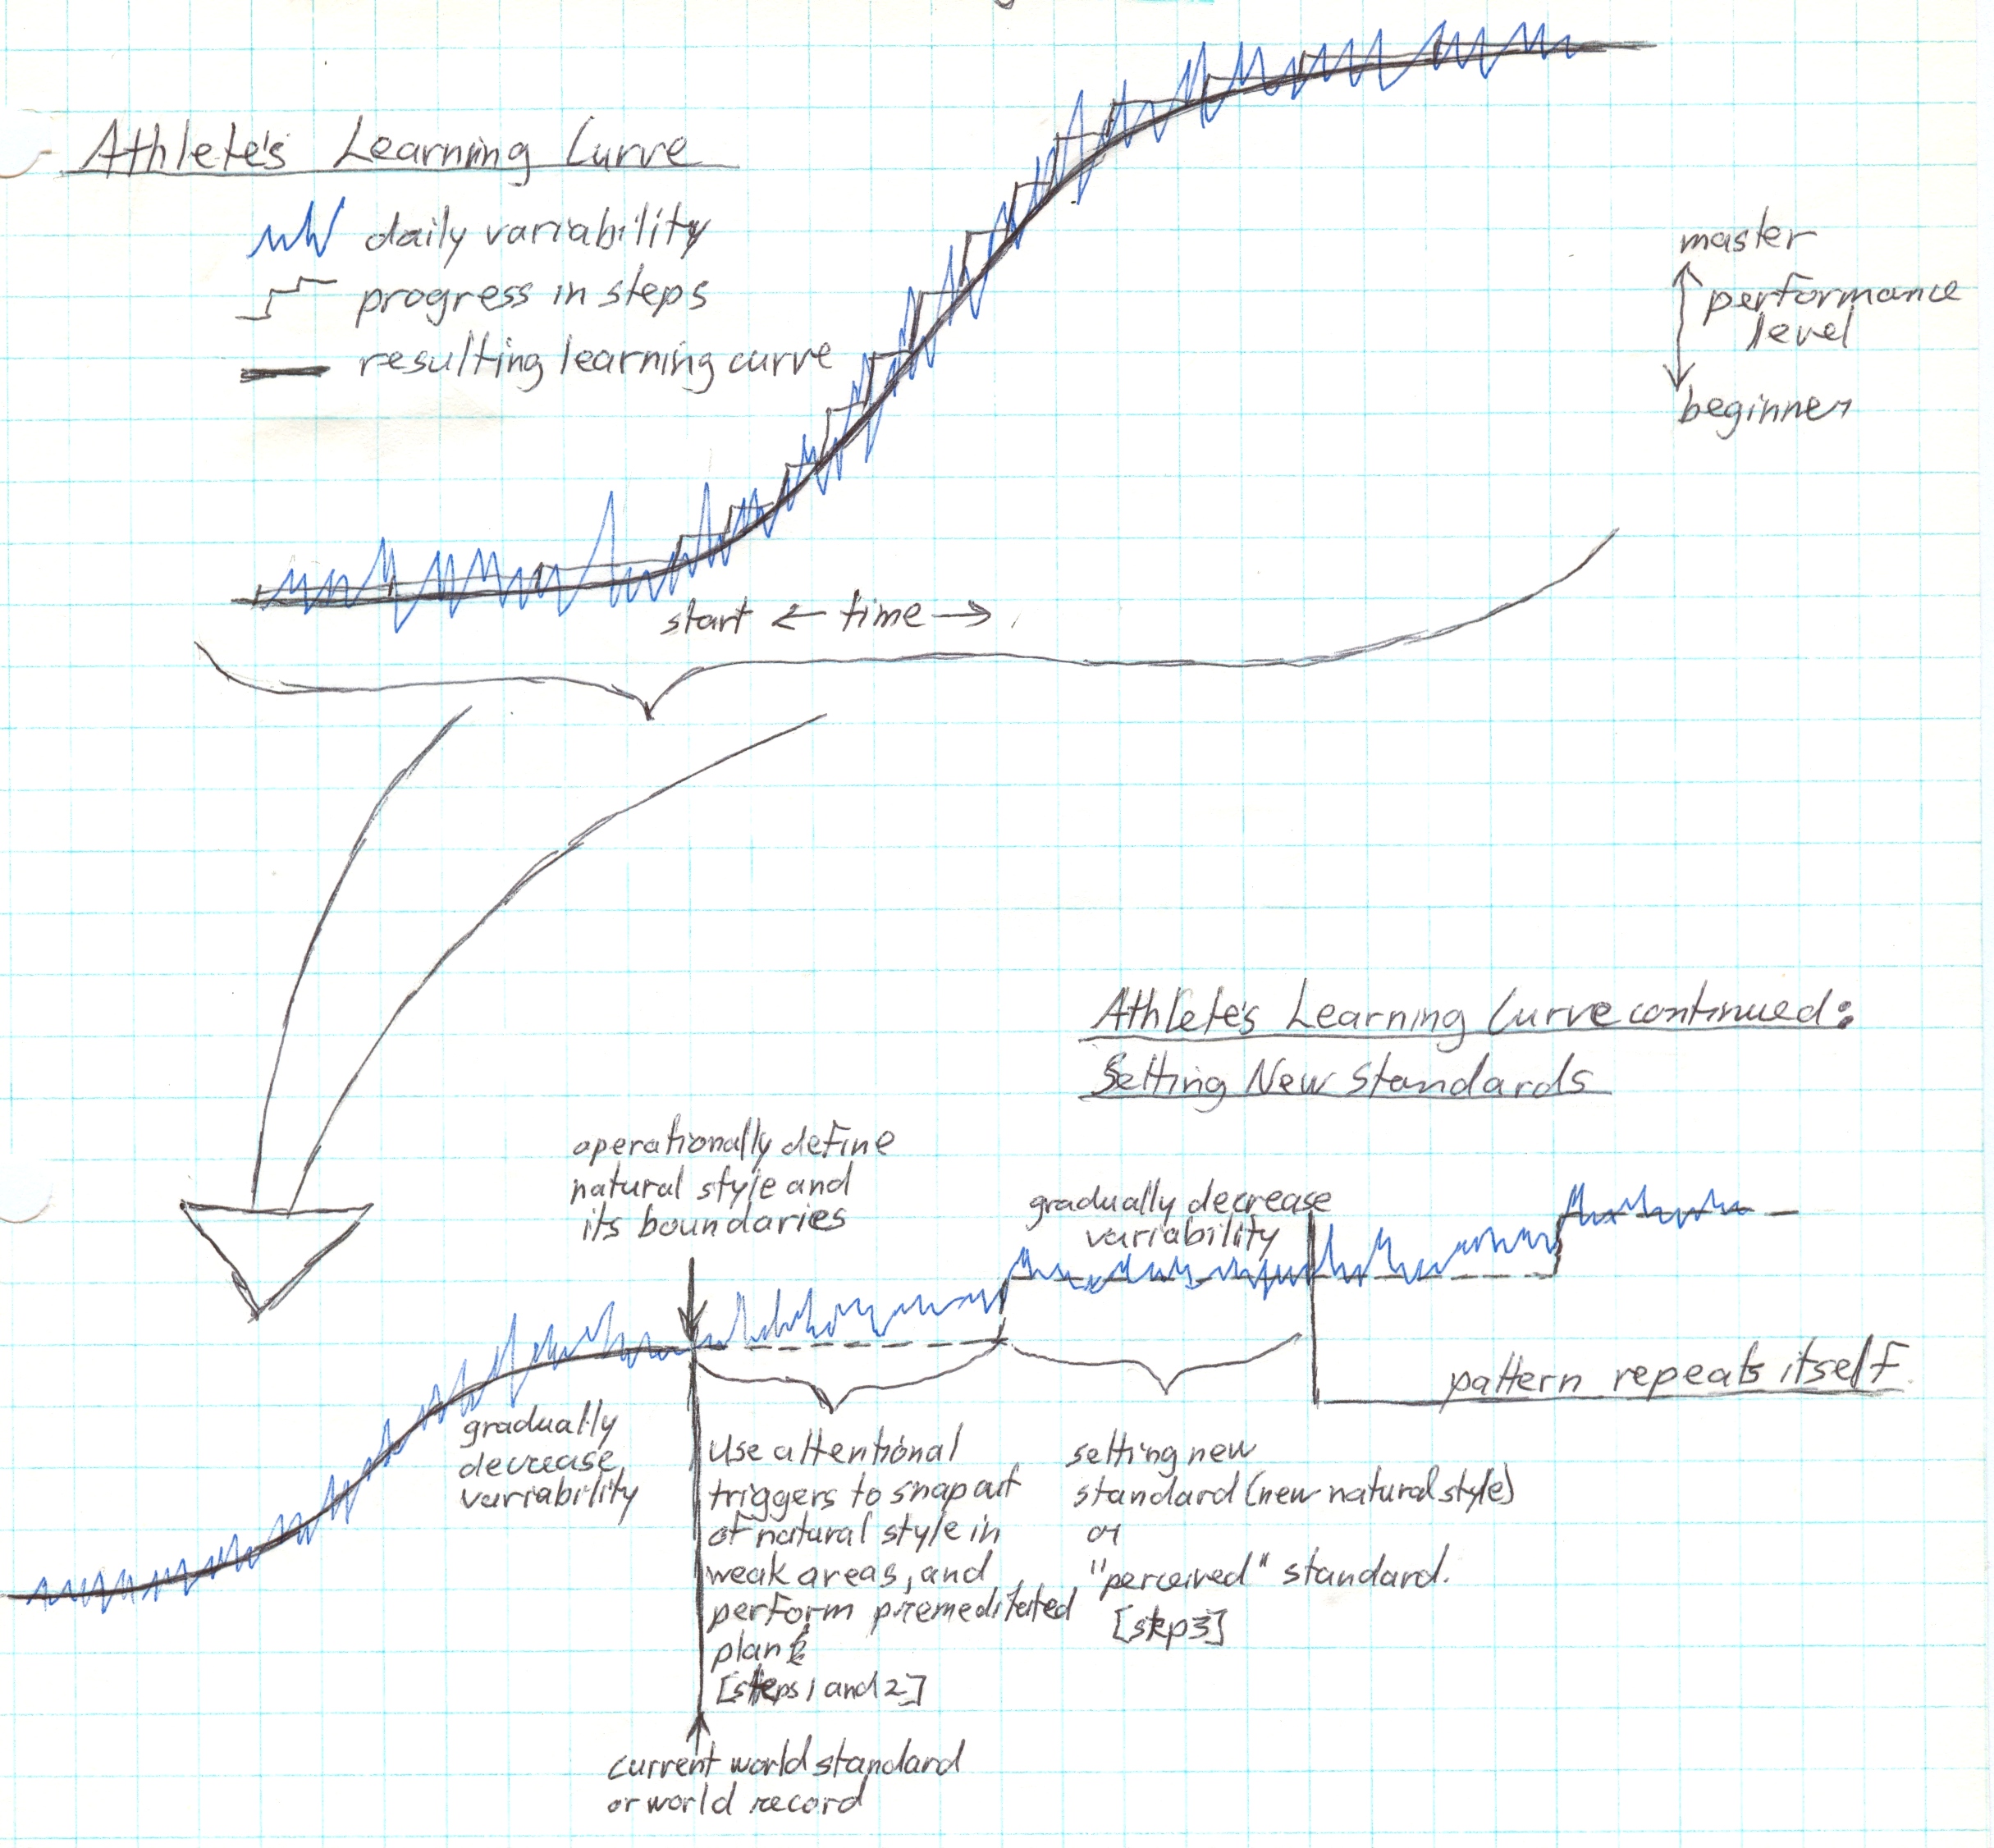 Athlete's Learning Curve
daily variability
progress in steps
resulting learning curve
master
performance
level
beginner
start ← time →
Athlete's Learning Curve continued:
Setting New Standards
operationally define
natural style and
its boundaries
gradually decrease
variability
pattern repeats itself
gradually
decrease
variability
Use attentional
triggers to snap out
of natural style in
weak areas, and
perform premeditated
plan
[steps 1 and 2]
setting new
standard (new natural style)
or
"perceived" standard.
[step 3]
current world standard
or world record